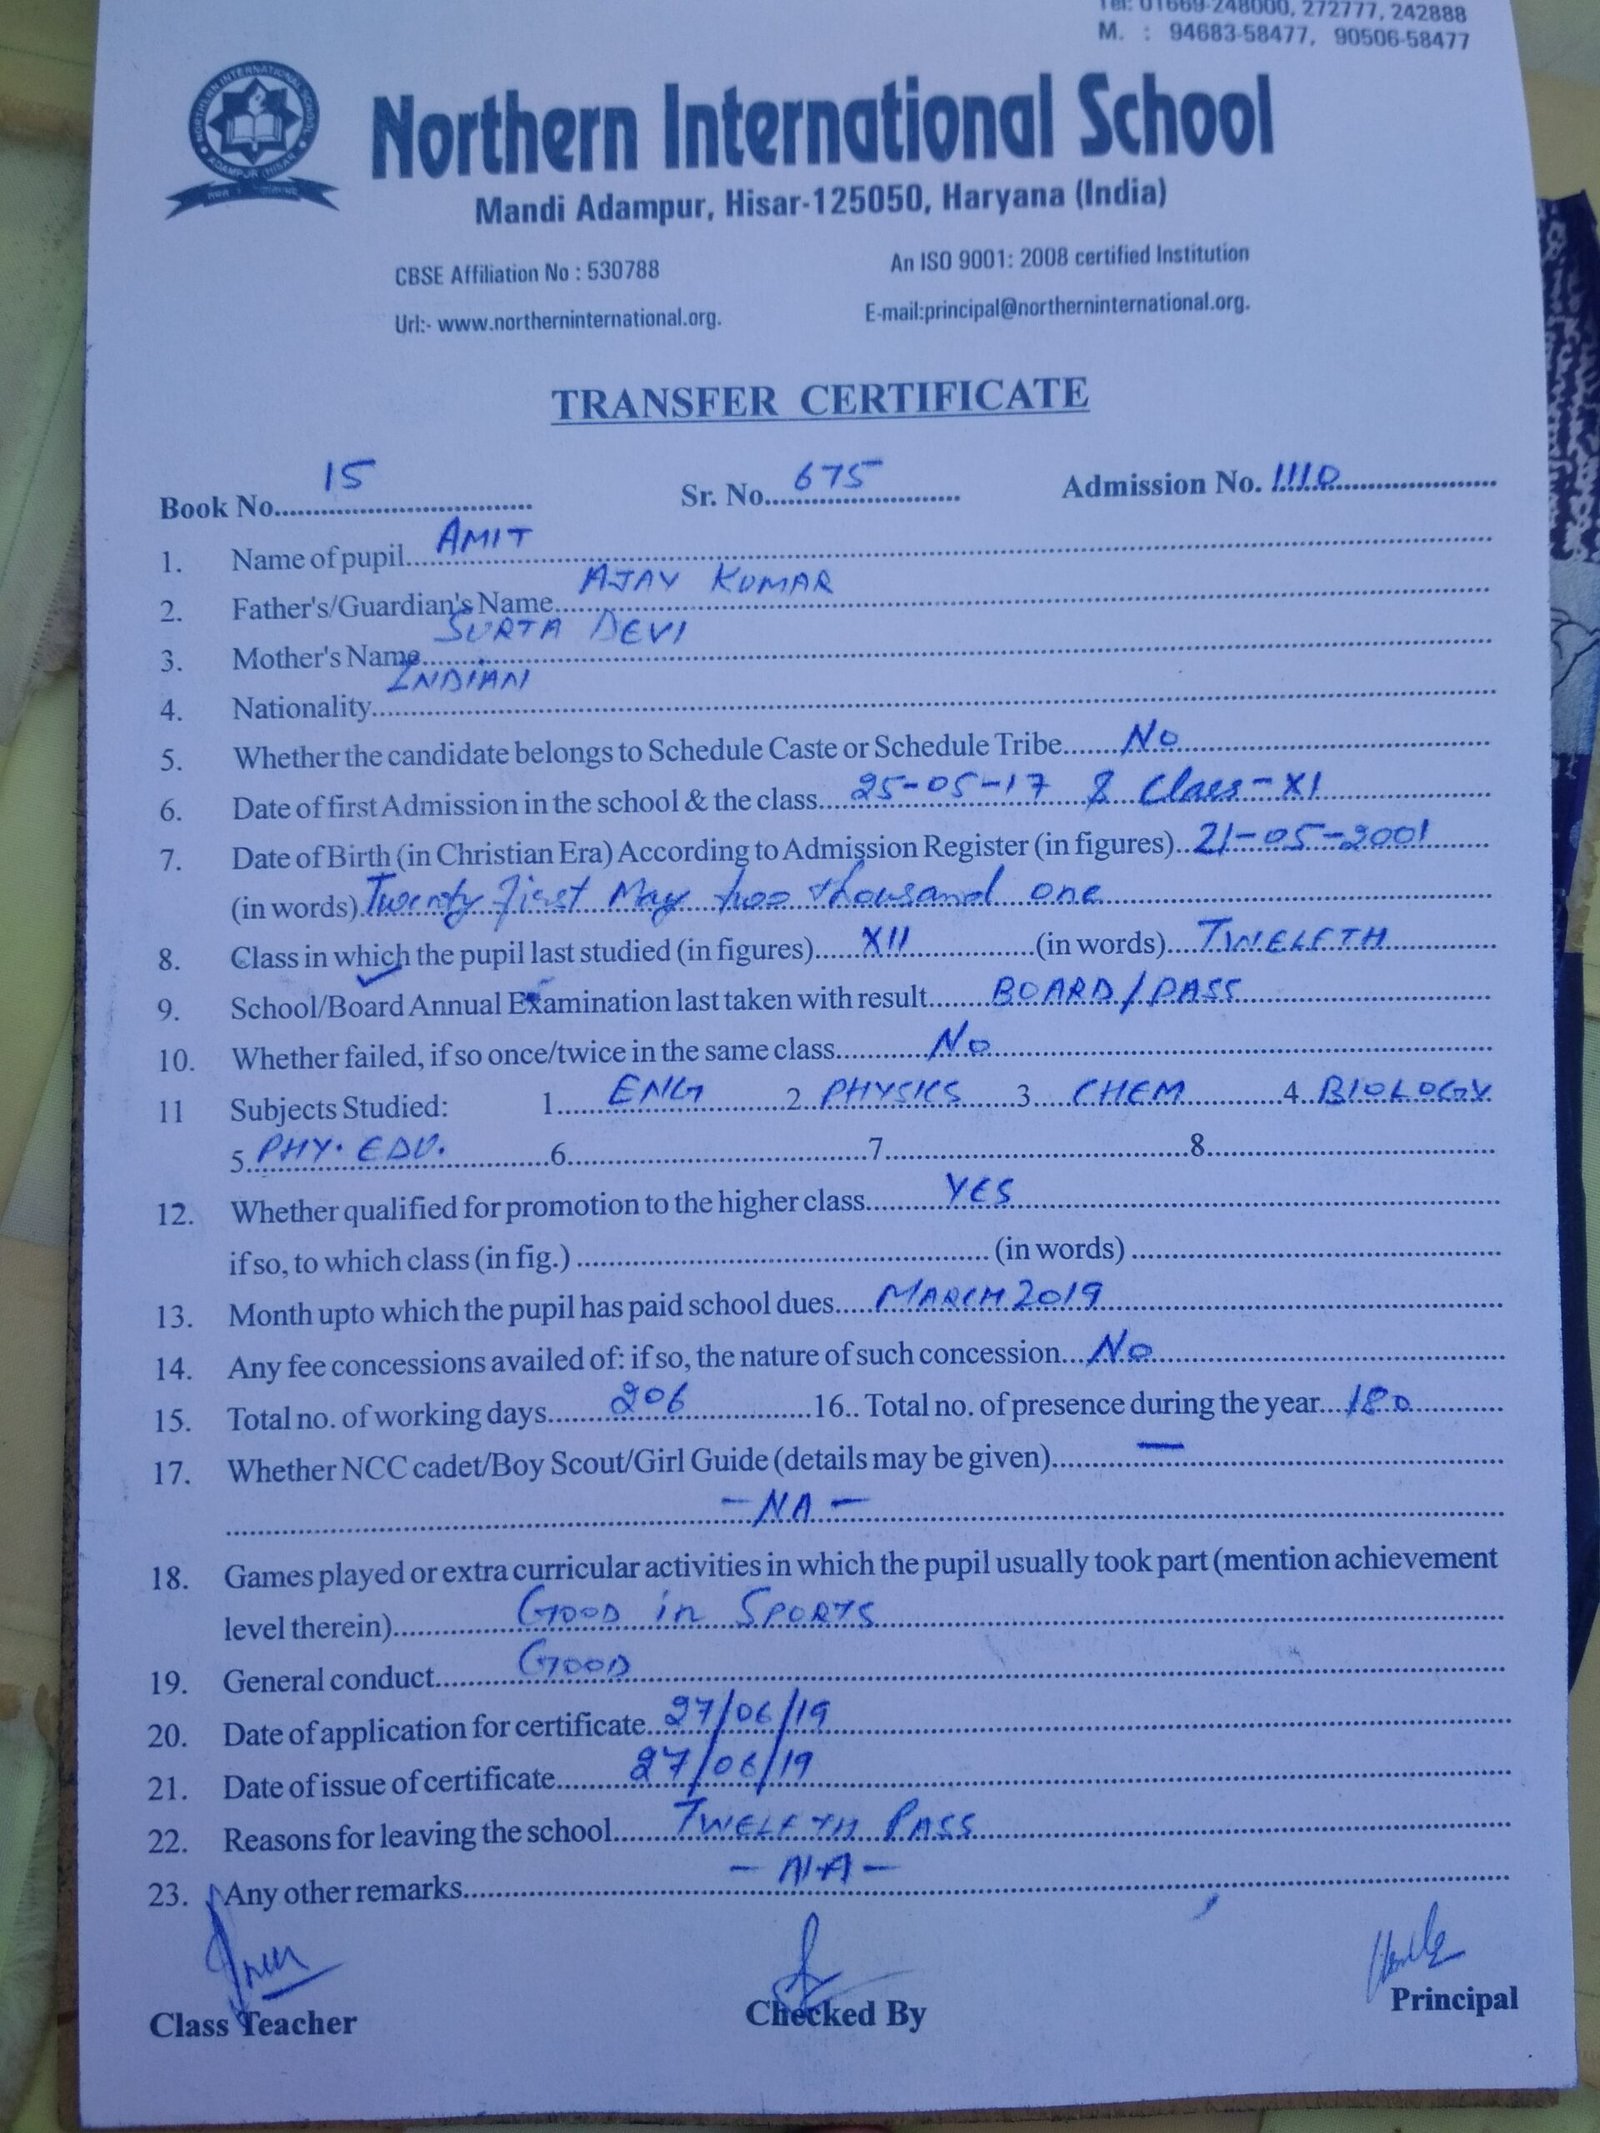 Tel: 01669-248000, 272777, 242888
M. : 94683-58477, 90506-58477
NORTHERN INTERNATIONAL SCHOOL
ADAMPUR (HISAR)
Northern International School
Mandi Adampur, Hisar-125050, Haryana (India)
CBSE Affiliation No : 530788 An ISO 9001: 2008 certified Institution
Url:- www.northerninternational.org. E-mail:principal@northerninternational.org.
TRANSFER CERTIFICATE
Book No. 15 Sr. No. 675 Admission No. 1110
1. Name of pupil AMIT
2. Father's/Guardian's Name AJAY KUMAR
3. Mother's Name SURTA DEVI
4. Nationality INDIAN
5. Whether the candidate belongs to Schedule Caste or Schedule Tribe No
6. Date of first Admission in the school & the class 25-05-17 & Class-XI
7. Date of Birth (in Christian Era) According to Admission Register (in figures) 21-05-2001
(in words) Twenty First May two thousand one
8. Class in which the pupil last studied (in figures) XII (in words) TWELFTH
9. School/Board Annual Examination last taken with result BOARD/PASS
10. Whether failed, if so once/twice in the same class No
11 Subjects Studied: 1 ENG 2 PHYSICS 3 CHEM 4 BIOLOGY
5 PHY. EDU. 6 7 8
12. Whether qualified for promotion to the higher class YES
if so, to which class (in fig.) (in words)
13. Month upto which the pupil has paid school dues MARCH 2019
14. Any fee concessions availed of: if so, the nature of such concession No
15. Total no. of working days 206 16.. Total no. of presence during the year 180
17. Whether NCC cadet/Boy Scout/Girl Guide (details may be given) —
- NA -
18. Games played or extra curricular activities in which the pupil usually took part (mention achievement
level therein) GOOD in SPORTS
19. General conduct GOOD
20. Date of application for certificate 27/06/19
21. Date of issue of certificate 27/06/19
22. Reasons for leaving the school TWELFTH PASS
23. Any other remarks - NA -
Class Teacher Checked By Principal